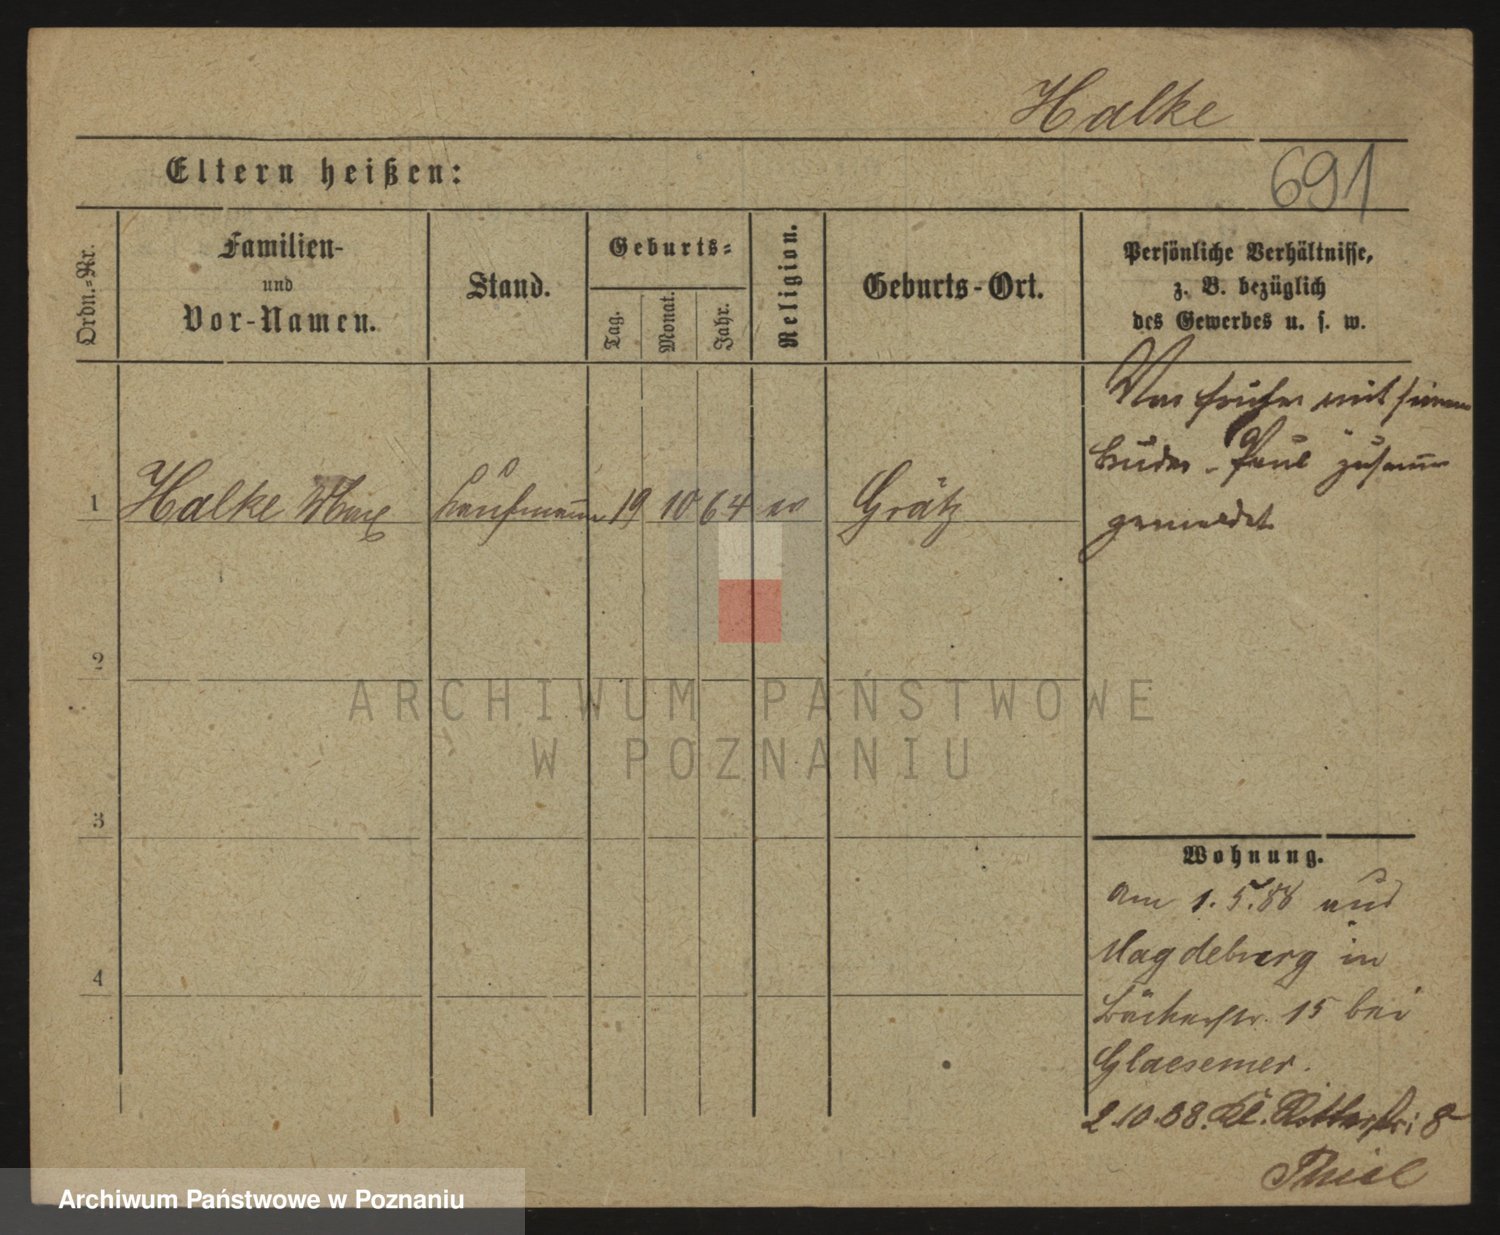 Halke
Eltern heißen:
691
Ordn.-Nr.
Familien-
und
Vor-Namen.
Stand.
Geburts-
Tag.
Monat.
Jahr.
Religion.
Geburts-Ort.
Persönliche Verhältnisse,
z. B. bezüglich
des Gewerbes u. s. w.
1 Halke Max Kaufmann 19 10 64 Grätz
War früher mit seinem
Bruder Paul zusamm
gemeldet
2
3
4
ARCHIWUM PAŃSTWOWE
W POZNANIU
Wohnung.
am 1.5.88 aus
Magdeburg in
Bäckerstr. 15 bei
Glaesemer.
2.10.88. Kl. Ritterstr: 8
Thiel
Archiwum Państwowe w Poznaniu